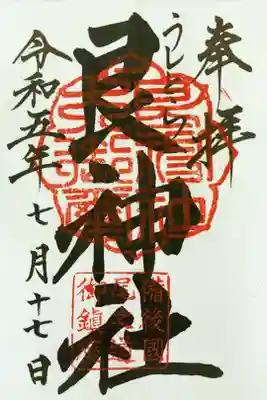 奉拝
うしとら
艮神社
令和五年 七月十七日
備後國
尾之道
御鎮